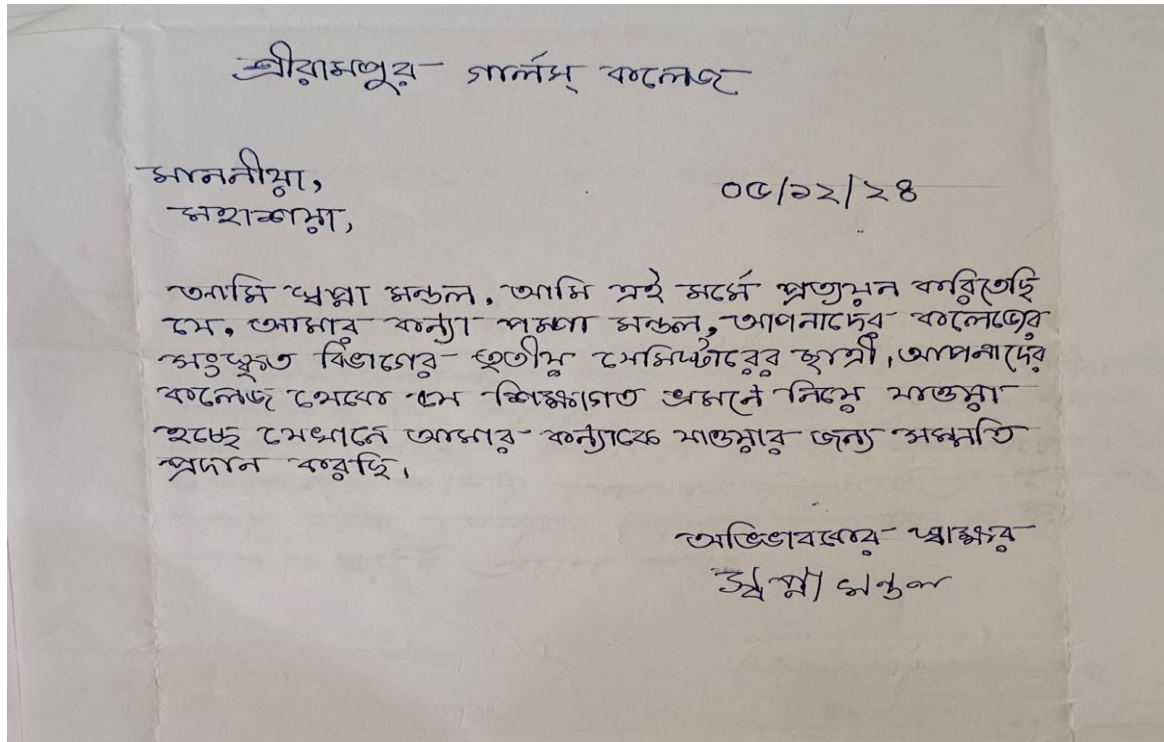 শ্রীরামপুর গার্লস্ কলেজ
মাননীয়া, ০৫/১২/২৪
মহাশয়া,
আমি স্বপ্না মন্ডল, আমি এই মর্মে প্রত্যয়ন করিতেছি
যে, আমার কন্যা মন্ডল, আপনাদের কলেজের
সংস্কৃত বিভাগের তৃতীয় সেমিস্টারের ছাত্রী, আপনাদের
কলেজ থেকে যে শিক্ষাগত ভ্রমনে নিয়ে যাওয়া
হচ্ছে সেখানে আমার কন্যাকে যাওয়ার জন্য সম্মতি
প্রদান করছি।
অভিভাবকের স্বাক্ষর
স্বপ্না মন্ডল